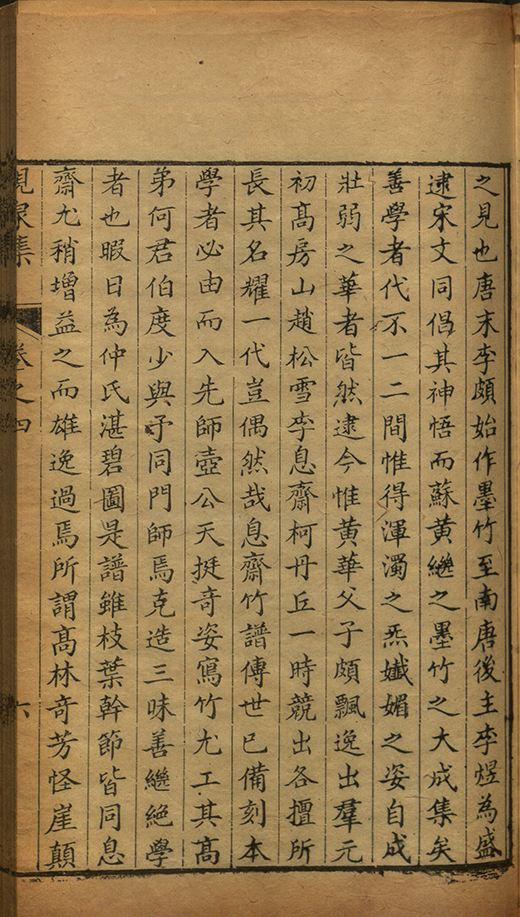 之見也唐末李頗始作墨竹至南唐後主李煜為盛
逮宋文同倡其神悟而蘇黄繼之墨竹之大成集矣
善學者代不一二間惟得渾濁之炁孅媚之姿自成
壯弱之華者皆然逮今惟黄華父子頗飄逸出羣元
初髙房山趙松雪李息齋柯丹丘一時競出各擅所
長其名耀一代豈偶然哉息齋竹譜傳世已備刻本
學者必由而入先師壺公天挺竒姿寫竹尤工其髙
弟何君伯度少與予同門師焉克造三昧善繼絶學
者也暇日為仲氏湛碧圖是譜雖枝葉幹節皆同息
齋尤稍增益之而雄逸過焉所謂髙林奇芳怪崖顛
卷之四
六